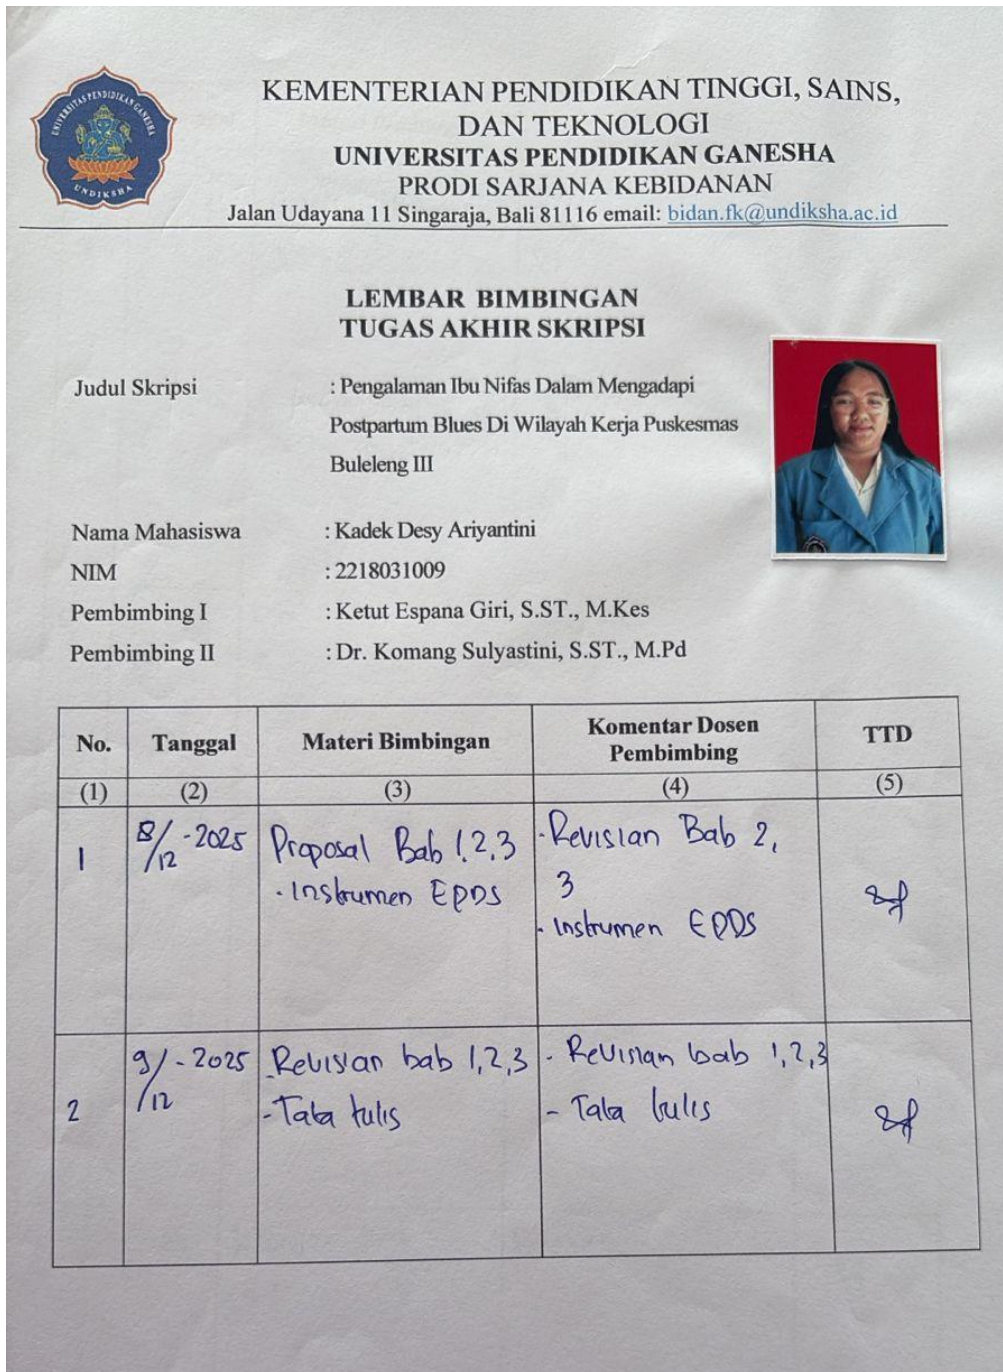 UNIVERSITAS PENDIDIKAN GANESHA
UNDIKSHA
KEMENTERIAN PENDIDIKAN TINGGI, SAINS,
DAN TEKNOLOGI
UNIVERSITAS PENDIDIKAN GANESHA
PRODI SARJANA KEBIDANAN
Jalan Udayana 11 Singaraja, Bali 81116 email: bidan.fk@undiksha.ac.id
LEMBAR BIMBINGAN
TUGAS AKHIR SKRIPSI
Judul Skripsi : Pengalaman Ibu Nifas Dalam Mengadapi
Postpartum Blues Di Wilayah Kerja Puskesmas
Buleleng III
Nama Mahasiswa : Kadek Desy Ariyantini
NIM : 2218031009
Pembimbing I : Ketut Espana Giri, S.ST., M.Kes
Pembimbing II : Dr. Komang Sulyastini, S.ST., M.Pd
No. Tanggal Materi Bimbingan Komentar Dosen Pembimbing TTD
(1) (2) (3) (4) (5)
1 8/12 - 2025 Proposal Bab 1,2,3 - Revisian Bab 2,
3
- Instrumen EPDS - Instrumen EPDS
2 9/12 - 2025 - Revisian bab 1,2,3 - Revisian bab 1,2,3
- Tata tulis - Tata tulis